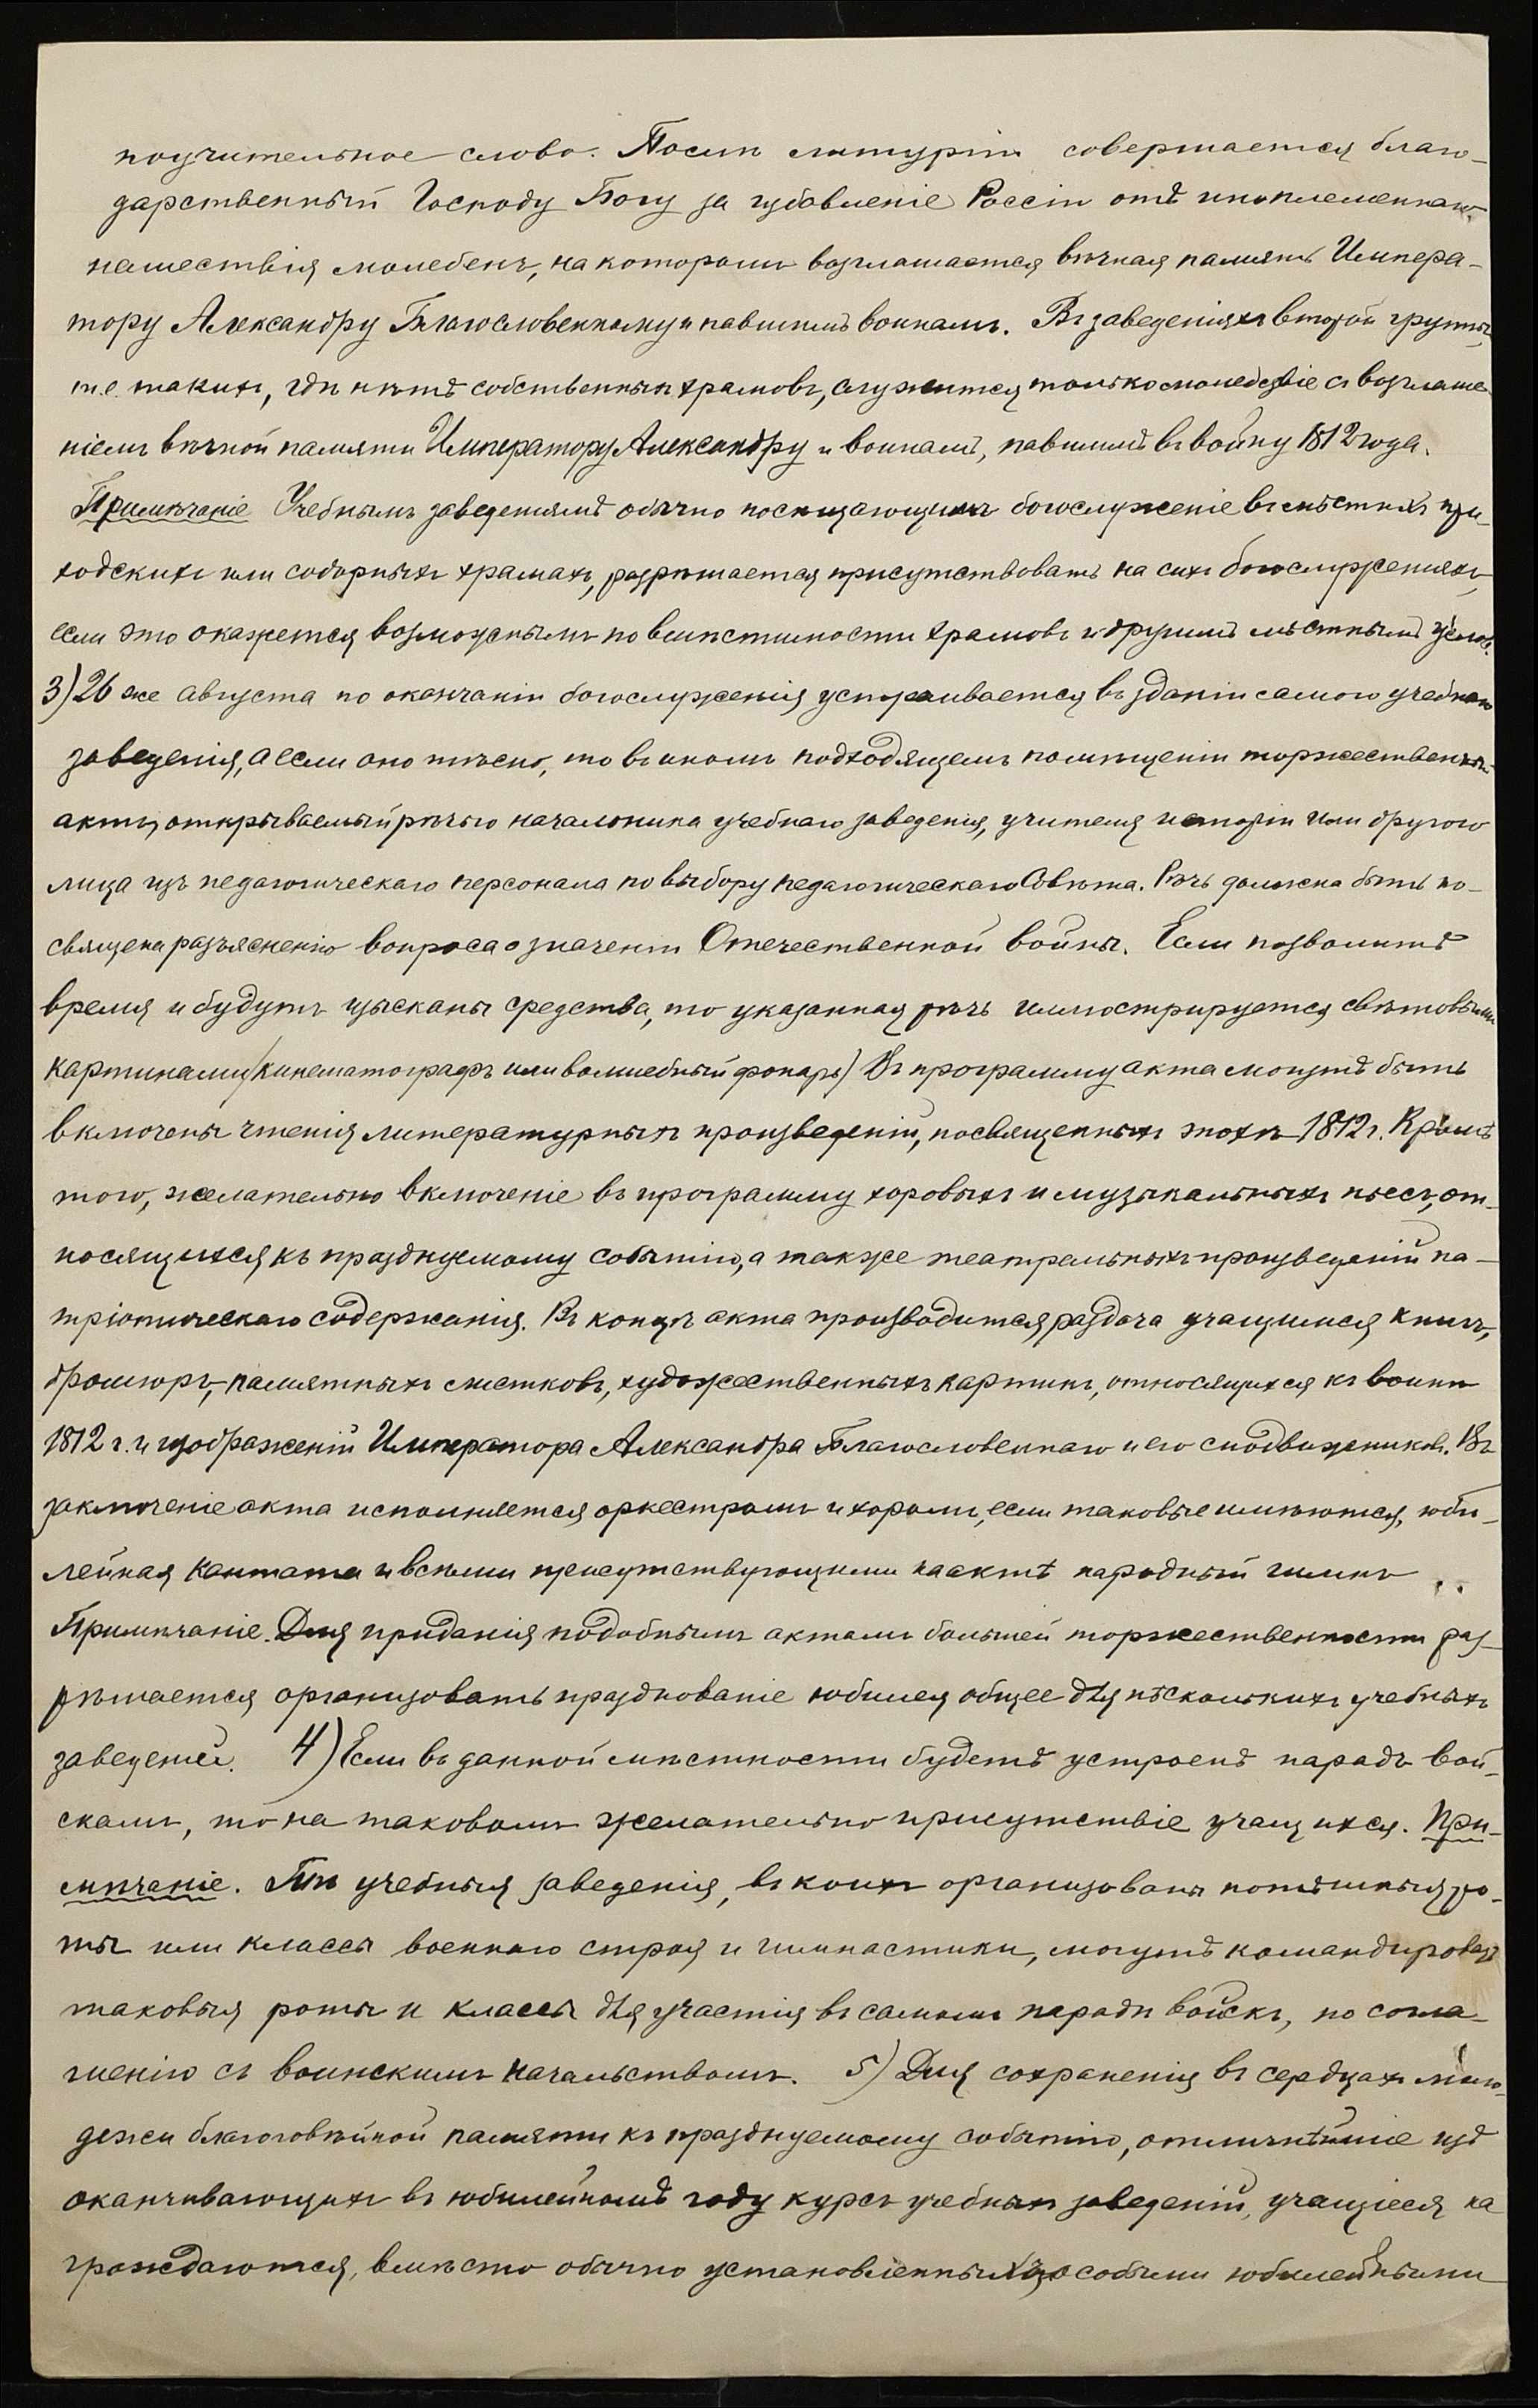 поучительное слово. Послѣ литургіи совершается благо-
дарственный Господу Богу за избавленіе Россіи отъ иноплеменнаго
нашествія молебенъ, на которомъ возглашается вѣчная память Импера-
тору Александру Благословенному и павшимъ воинамъ. Въ заведеніяхъ второй группы,
т.е. такихъ, гдѣ нѣтъ собственныхъ храмовъ, служится только молебствіе съ возглаше-
ніемъ вѣчной памяти Императору Александру и воинамъ, павшимъ въ войну 1812 года.
Примѣчаніе Учебнымъ заведеніямъ обычно посѣщающимъ богослуженіе въ мѣстныхъ при-
ходскихъ или соборныхъ храмахъ, разрѣшается присутствовать на сихъ богослуженіяхъ,
если это окажется возможнымъ по вмѣстимости храмовъ и другимъ мѣстнымъ услов.
3) 26 же августа по окончаніи богослуженія устраивается въ зданіи самого учебнаго
заведенія, а если оно тѣсно, то въ иномъ подходящемъ помѣщеніи торжественный
актъ, открываемый рѣчью начальника учебнаго заведенія, учителя исторіи или другого
лица изъ педагогическаго персонала по выбору педагогическаго Совѣта. Рѣчь должна быть по-
священа разъясненію вопроса о значеніи Отечественной войны. Если позволитъ
время и будутъ изысканы средства, то указанная рѣчь иллюстрируется свѣтовыми
картинами /кинематографъ или волшебный фонарь/ Въ программу акта могутъ быть
включены чтенія литературныхъ произведеній, посвященныхъ эпохѣ 1812 г. Кромѣ
того, желательно включеніе въ программу хоровыхъ и музыкальныхъ пьесъ, от-
носящихся къ празднуемому событію, а также театральныхъ произведеній па-
тріотическаго содержанія. Въ концѣ акта производится раздача учащимся книгъ,
брошюръ, памятныхъ листковъ, художественныхъ картинъ, относящихся къ войнѣ
1812 г. и изображеній Императора Александра Благословеннаго и его сподвижниковъ. Въ
заключеніе акта исполняется оркестромъ и хоромъ, если таковые имѣются, юби-
лейная кантата и всѣми присутствующими на актѣ народный гимнъ
Примѣчаніе. Для приданія подобнымъ актамъ большей торжественности раз-
рѣшается организовать празднованіе юбилея общее для нѣсколькихъ учебныхъ
заведеній. 4) Если въ данной мѣстности будетъ устроенъ парадъ вой-
скамъ, то на таковомъ желательно присутствіе учащихся. При-
мѣчаніе. Тѣ учебныя заведенія, въ коихъ организованы потѣшныя ро-
ты или классы военнаго строя и гимнастики, могутъ командировать
таковыя роты и классы для участія въ самомъ парадѣ войскъ, по согла-
шенію съ воинскимъ начальствомъ. 5) Для сохраненія въ сердцахъ моло-
дежи благоговѣйной памяти къ празднуемому событію, отличнѣйшіе изъ
оканчивающихъ въ юбилейномъ году курсъ учебныхъ заведеній, учащіеся на
граждаются, вмѣсто обычно установленныхъ, особыми юбилейными